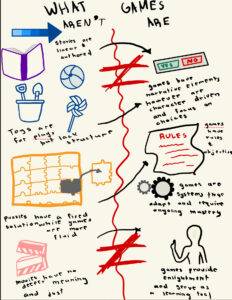 WHAT
AREN'T
GAMES
ARE
stories are
linear &
authored
YES NO
games have
narrative elements
however are
character driven
and focus on
choices
Toys are
for play but lack
structure
RULES
games
have
rules
&
objectives
puzzles have a fixed
solution while games
are more
fluid
games are
systems that
adapt and require
ongoing mastery
movies have no
deeper meaning
and just
games provide
enlightment
and serve as
a learning tool